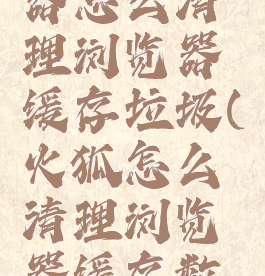 器怎么清
理浏览器
缓存垃圾(
火狐怎么
清理浏览
器缓存数